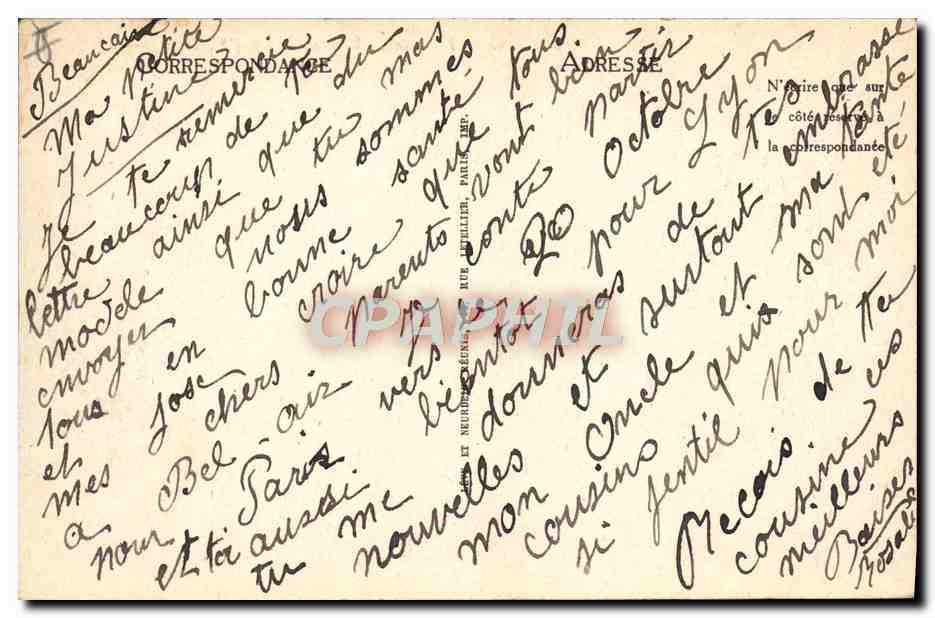 Beaucaire
CORRESPONDANCE
ADRESSE
N'écrire que sur
le côté réservé à
la correspondance
LÉVY ET NEURDEIN RÉUNIS, RUE LETELLIER, PARIS, IMP.
Ma petite
Justine
Je te remercie
beaucoup de ta
lettre ainsi que du
modèle que tu mas
envoyer nous sommes
tous en bonne santé tous
et jose croire que
mes chers parents vont bien
a Bel-air Je conte partir
pour Paris vers le 20 Octobre
et toi aussi bientot pour Lyon
tu me donneras de tes
nouvelles et surtout embrasse
mon Oncle et ma tante
cousins quis sont été
si jentil pour moi
Recois de ta
cousine ces
meilleurs
Baisers
Rosalie
CPAPHIL